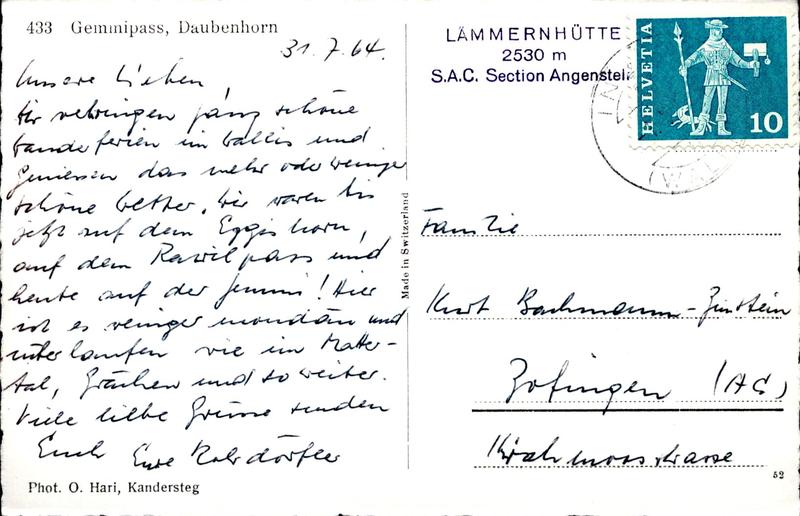 433 Gemmipass, Daubenhorn
31.7.64.
Unsere Lieben
Wir verbringen ganz schöne
Wanderferien im Wallis und
geniessen das mehr oder weniger
schöne Wetter. Wir waren bis
jetzt auf dem Eggishorn,
auf dem Rawilpass und
heute auf der Gemmi! Hier
ist es weniger mondän und
überlaufen wie im Matter-
tal, Grächen und so weiter.
Viele liebe Grüsse senden
Euch Eure
Phot. O. Hari, Kandersteg
Made in Switzerland
LÄMMERNHÜTTE
2530 m
S.A.C. Section Angenstei
HELVETIA
10
Familie
Kurt Bachmann-Zinstein
Zofingen (AG)
Kirchmoosstrasse
52